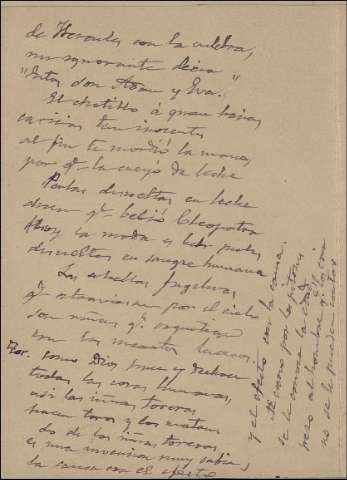 de Hercules con la culebra,
un ignorante decia "
"Estos don Adan y Eva."
El chotillo á quien hacias
caricias tan inocentes
al fin te mordió la mano
por qᵉ la cuajó de leche
Perlas disueltas en leche
dicen qᵉ bebió Cleopatra
Hoy la moda es beber perlas
disueltas en sangre humana
Las estrellas fugitivas
qᵉ atraviesan por el cielo
son niñas qᵉ
con los
Tor. como Dios hace y deshace
todas las cosas humanas,
asi las niñas toreras
hacen toros y los matan
Lo de las niñas toreras
es una invencion muy sabia,
la causa con el efecto
y el efecto con la causa.
Al como por los pitones
se le conoce la edad,
pero al hombre qᵉ los
no se le puede contar